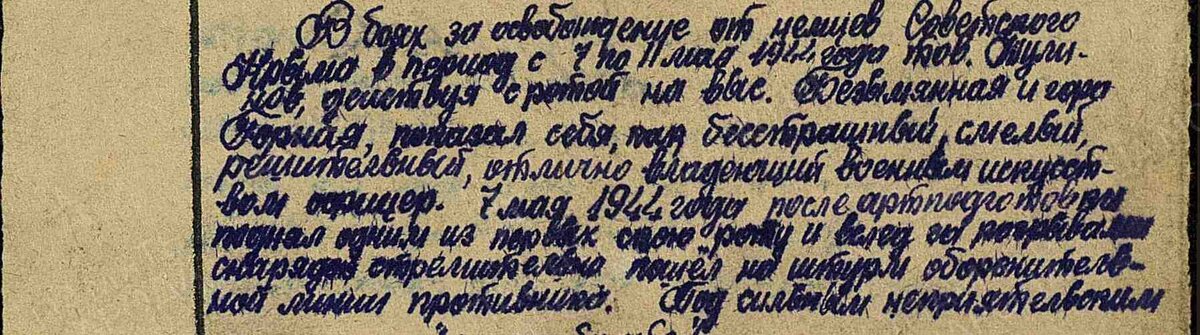 В боях за освобождение от немцев Советского
Крыма в период с 7 по 11 мая 1944 года тов. Кули-
ков, действуя с ротой на выс. Безымянная и гора
Горная, показал себя, как бесстрашный, смелый,
решительный, отлично владеющий военным искусст-
вом офицер. 7 мая 1944 года после артподготовки
поднял одним из первых свою роту и вслед за разрывами
снарядов стремительно пошёл на штурм оборонитель-
ной линии противника. Под сильным неприятельским